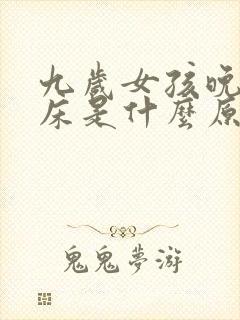 九歲女孩晚
床是什麼原
鬼鬼夢游